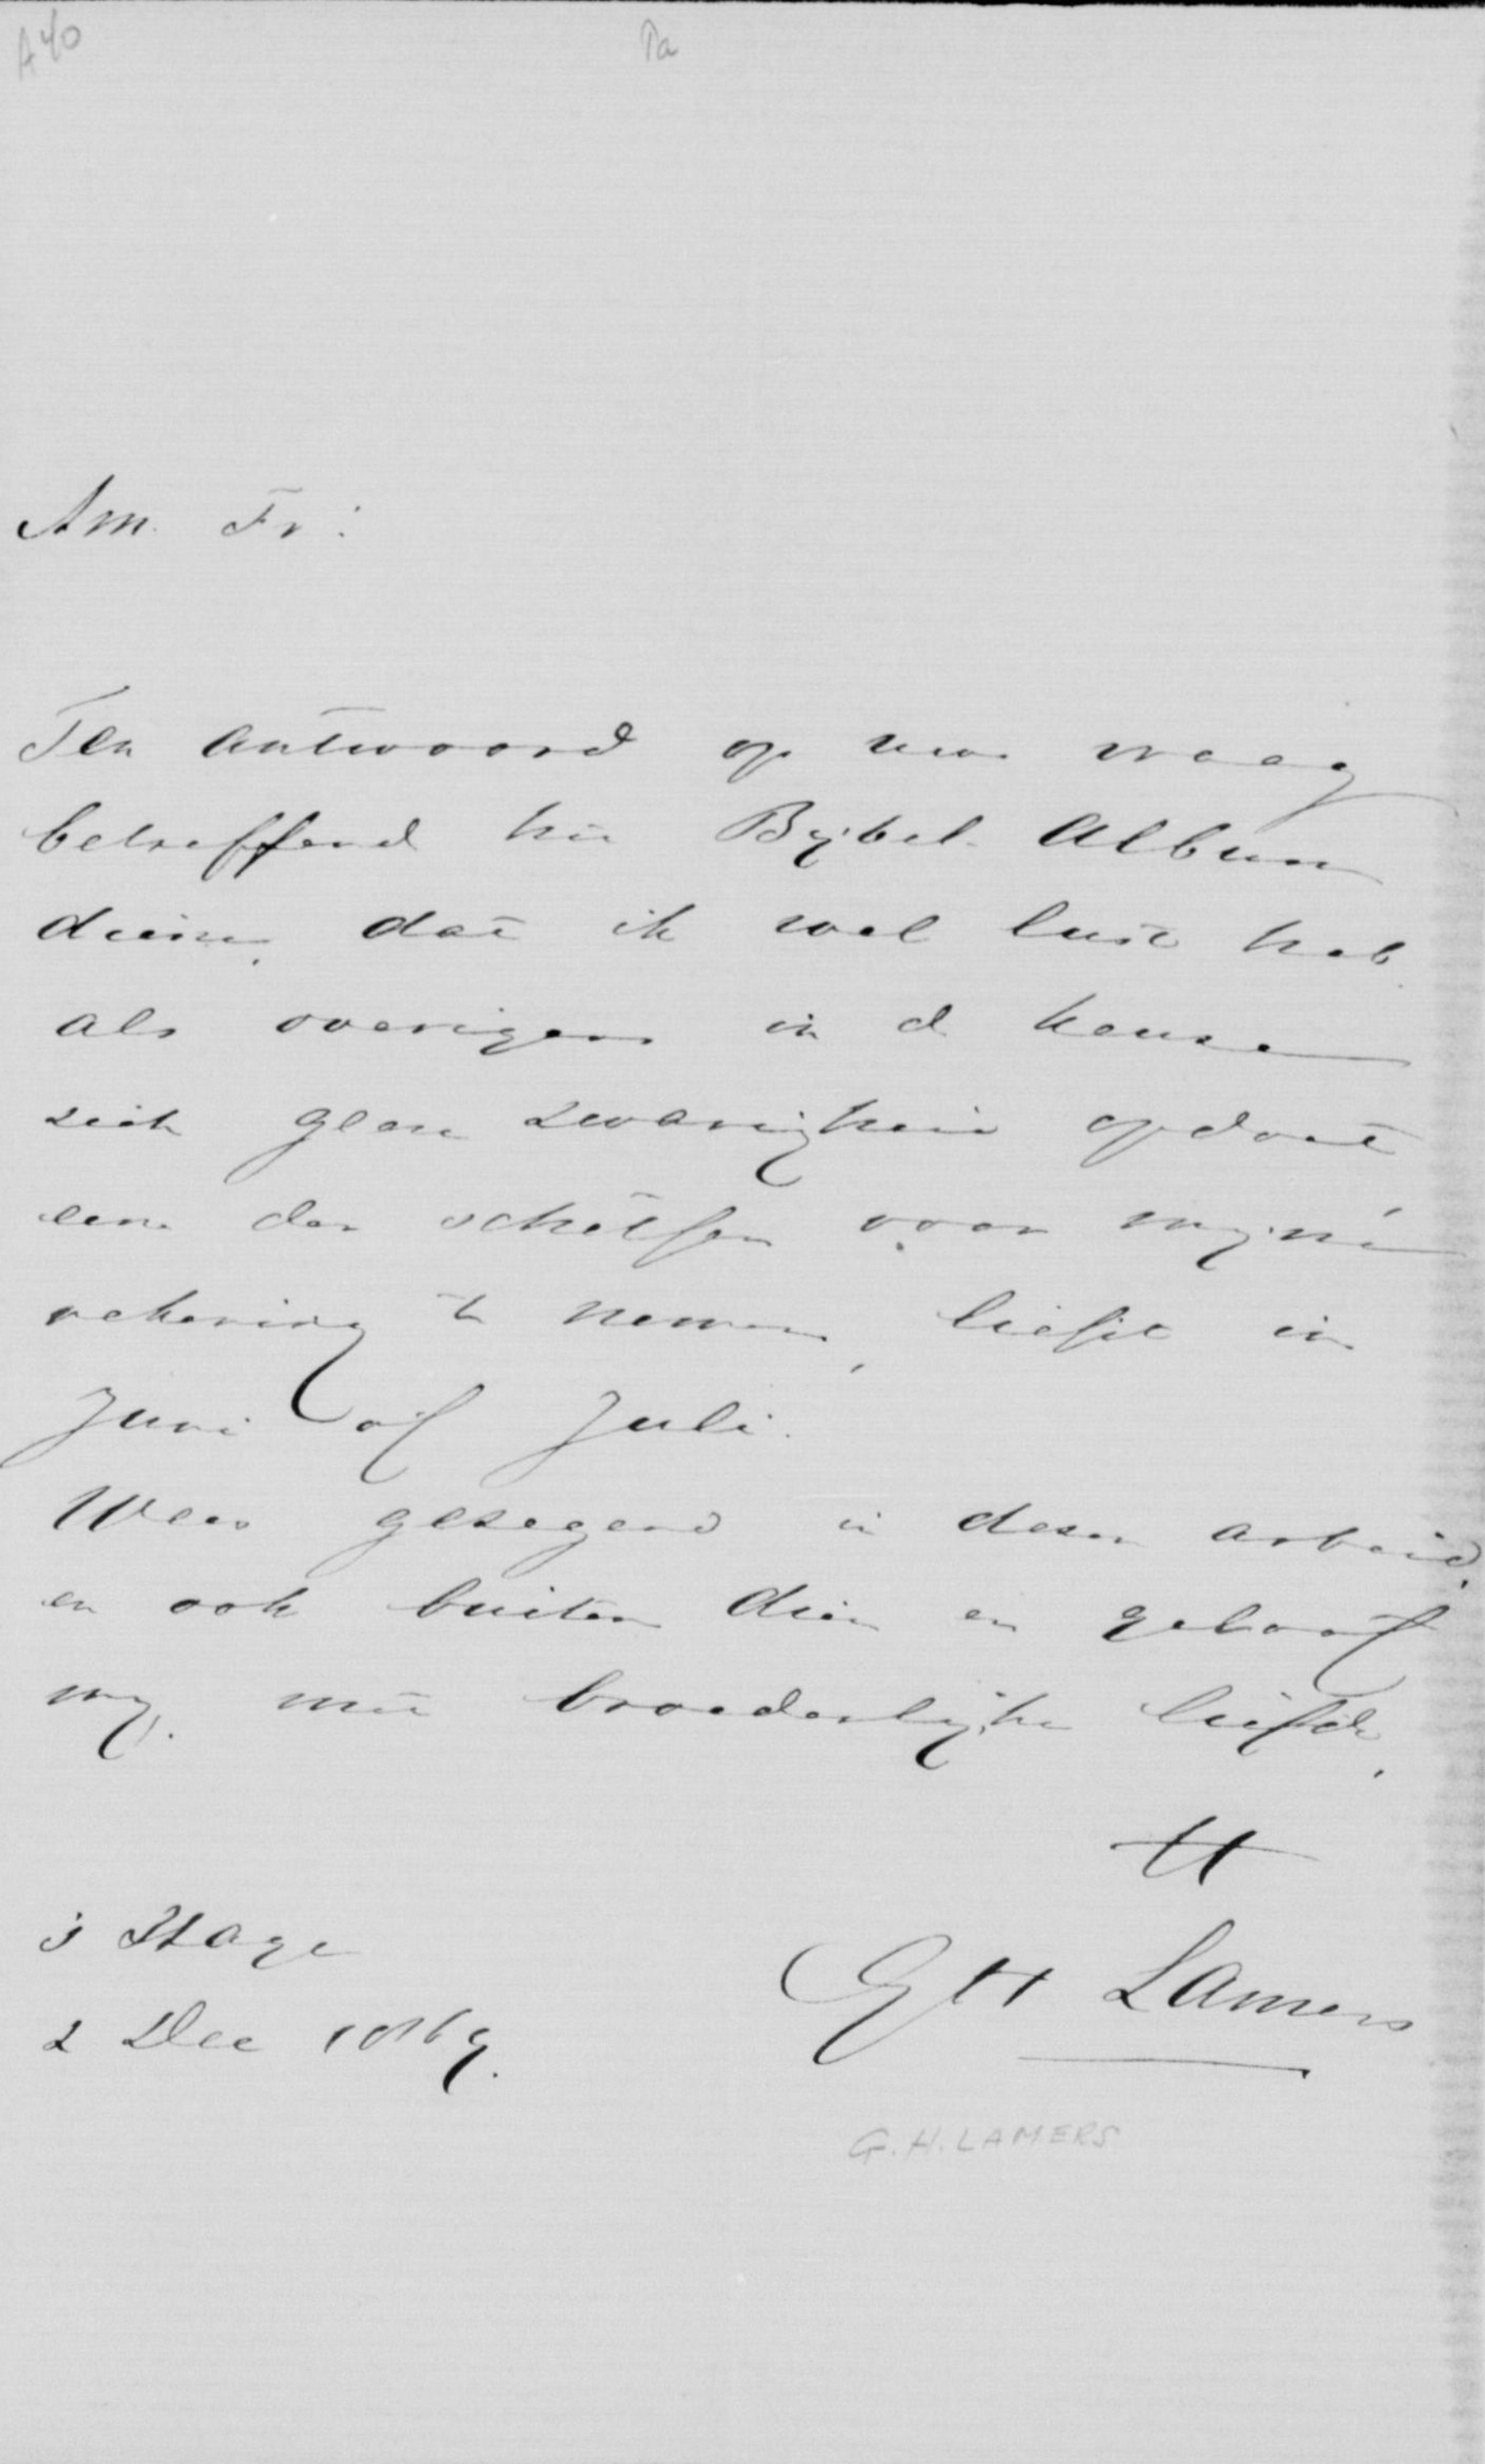 A40 Pa
Am. Fr:
Ten antwoord op uwe vraag
betreffend het Bijbel-Album
diene, dat ik wel lust heb
als overigens in de keuze
zich geen zwarigheid opdoet
eene der schetsen voor mijne
rekening te nemen, liefst in
Juni of Juli.
Wees gezegend in dezen arbeid,
en ook buiten dien en geloof
mij. met broederlijke liefde,
tt
's Hage
2 Dec 1869.
GH Lamers
G.H. LAMERS